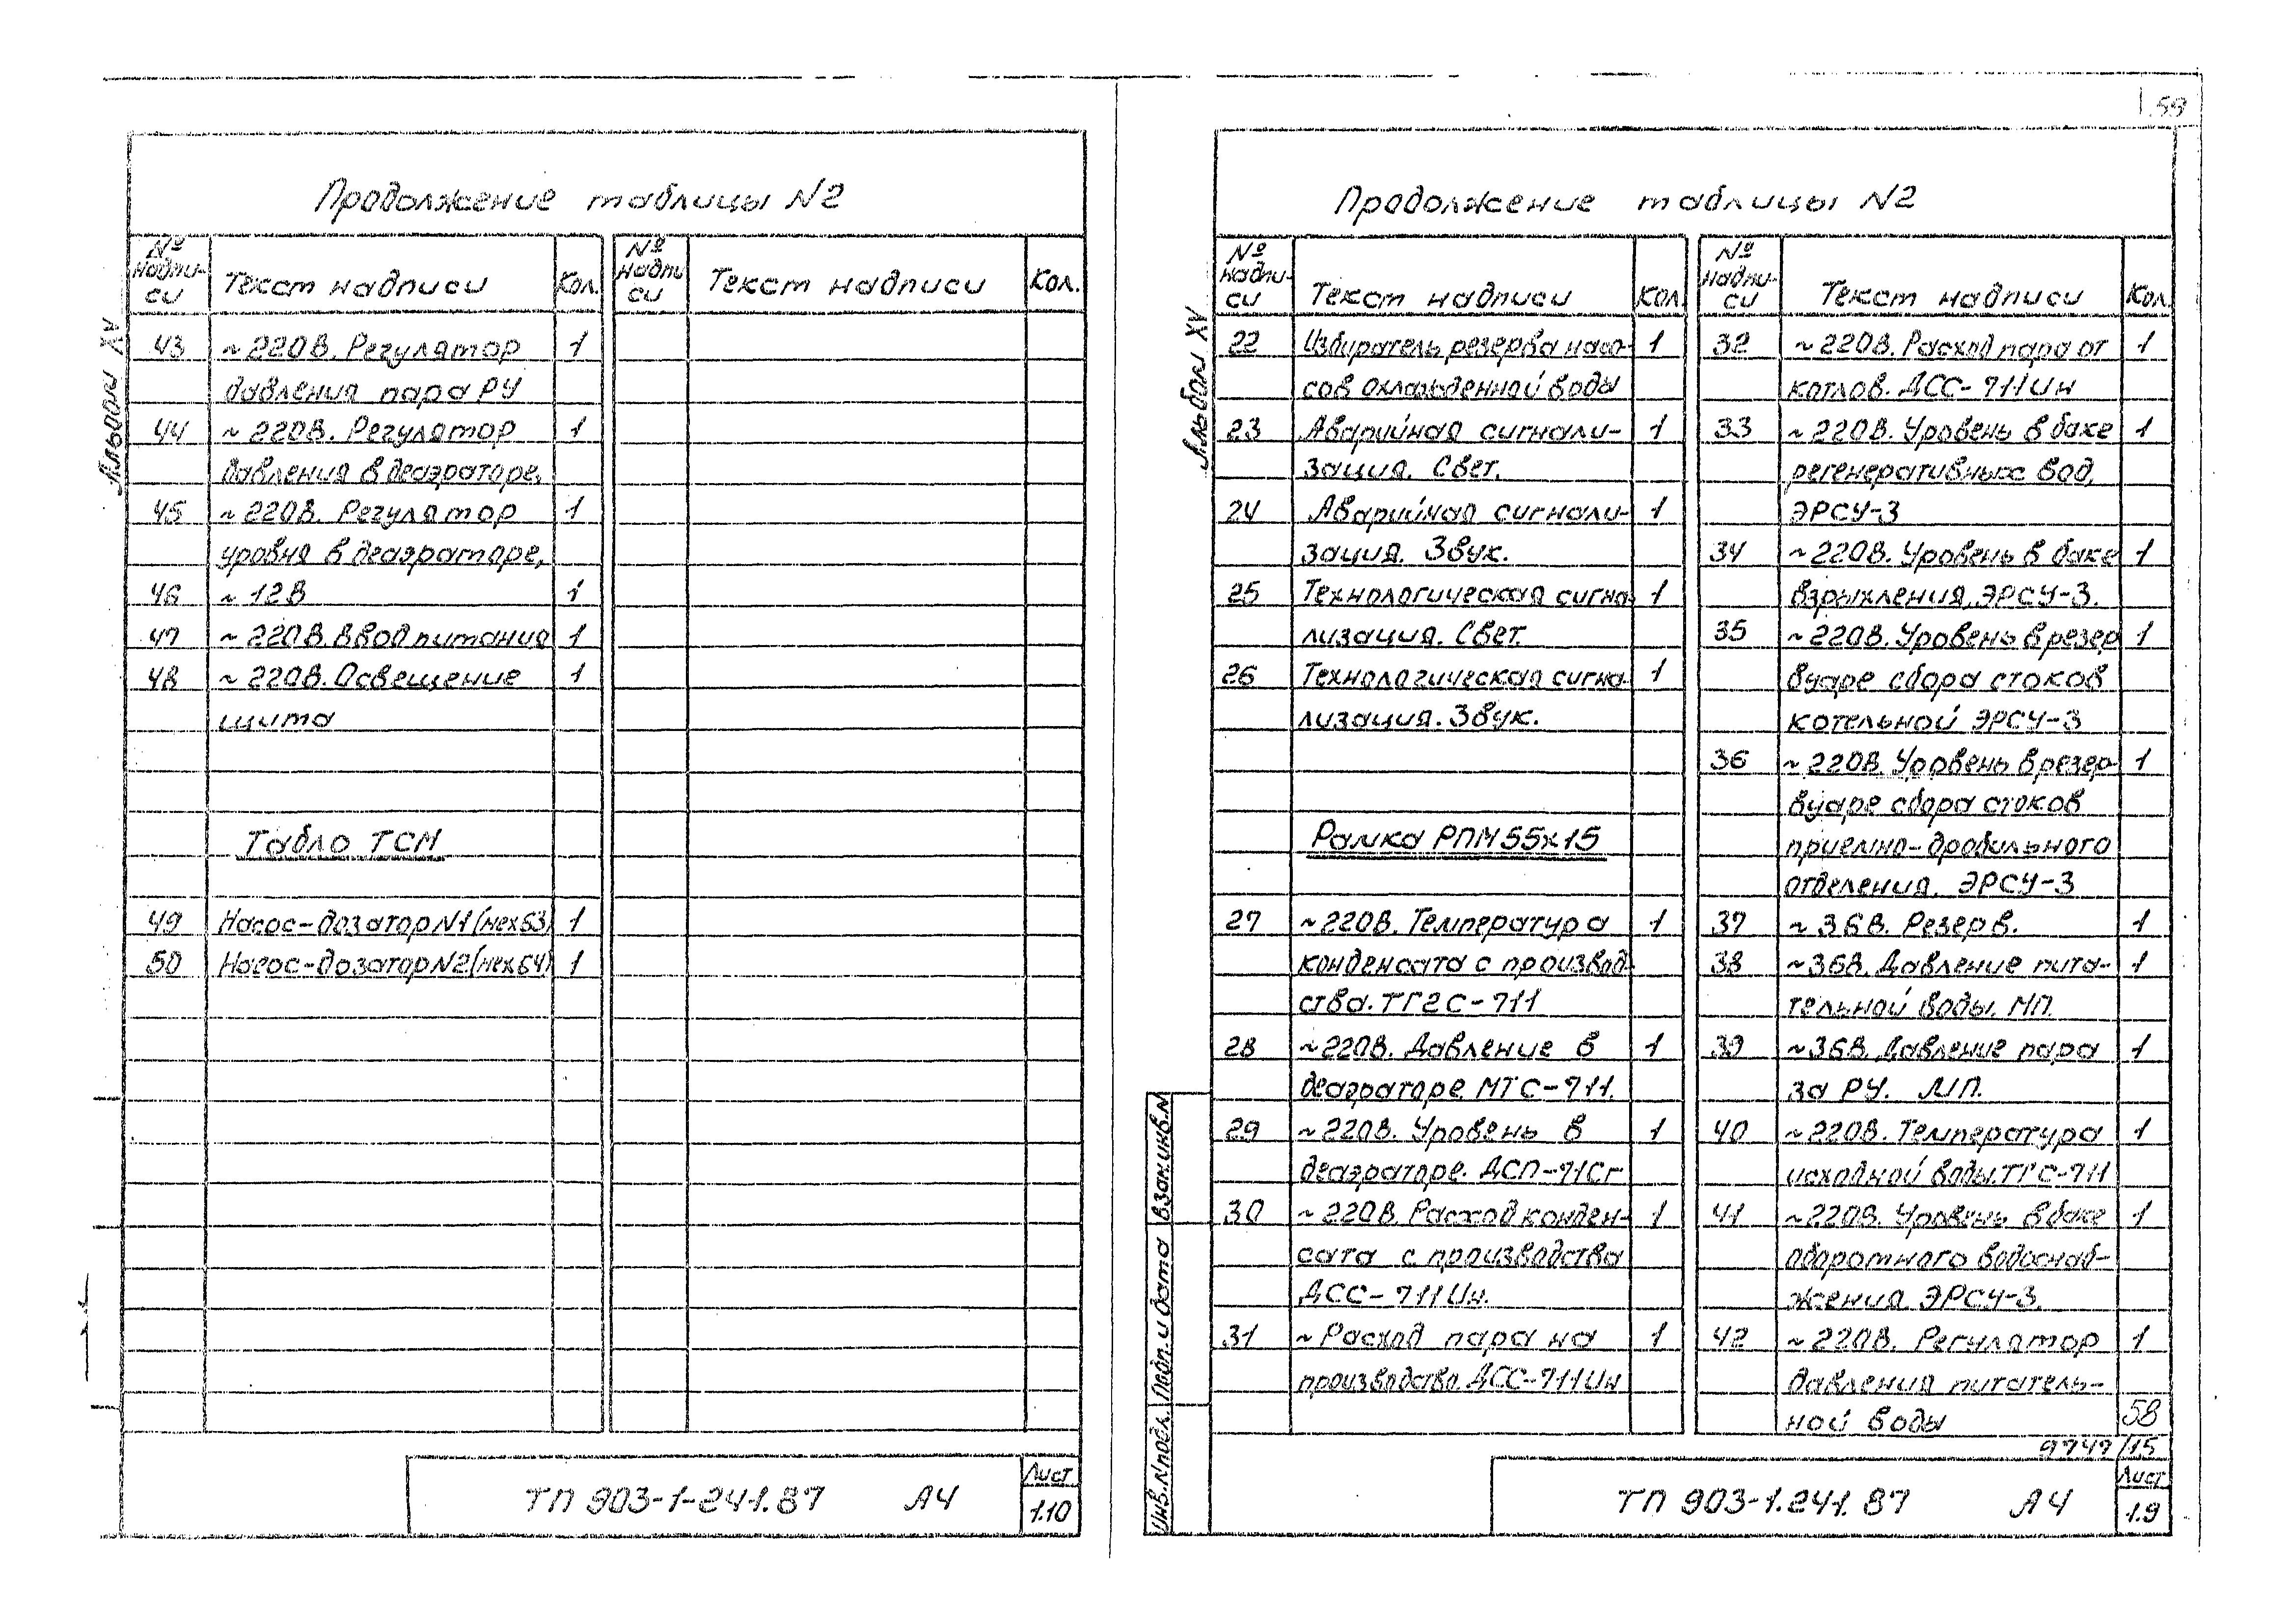 59
Альбом XV
Продолжение таблицы N2
№ надпи-си Текст надписи Кол. № надпи си Текст надписи Кол.
43 ~220В. Регулятор 1
давления пара РУ
44 ~220В. Регулятор 1
давления в деаэраторе,
45 ~220В. Регулятор 1
уровня в деаэраторе,
46 ~12В 1
47 ~220В. Ввод питания 1
48 ~220В. Освещение 1
щита
Табло ТСМ
49 Насос-дозатор N1 (мех63) 1
50 Насос-дозатор N2 (мех64) 1
ТП 903-1-241.87 А4
Лист
1.10
Альбом XV
Продолжение таблицы N2
№ надпи-си Текст надписи Кол. № надпи-си Текст надписи Кол.
22 Избиратель резерва насо- 1
сов охлажденной воды
23 Аварийная сигнали- 1
зация. Свет.
24 Аварийная сигнали- 1
зация. Звук.
25 Технологическая сигна- 1
лизация. Свет.
26 Технологическая сигна- 1
лизация. Звук.
Рамка РПМ 55х15
27 ~220В. Температура 1
конденсата с производ-
ства. ТГ2С-711
28 ~220В. Давление в 1
деаэраторе МТС-711.
29 ~220В. Уровень в 1
деаэраторе. ДСП-71Сг
30 ~220В. Расход конден- 1
сата с производства
ДСС-711Ин.
31 ~Расход пара на 1
производство. ДСС-711Ин
32 ~220В. Расход пара от 1
котлов. ДСС-711Ин
33 ~220В. Уровень в баке 1
регенеративных вод.
ЭРСУ-3
34 ~220В. Уровень в баке 1
взрыхления. ЭРСУ-3.
35 ~220В. Уровень в резер 1
вуаре сбора стоков
котельной ЭРСУ-3
36 ~220В. Уровень в резер- 1
вуаре сбора стоков
приемно-дробильного
отделения. ЭРСУ-3
37 ~36В. Резерв. 1
38 ~36В. Давление пита- 1
тельной воды. МП.
39 ~36В. Давление пара 1
за РУ. МП.
40 ~220В. Температура 1
исходной воды. ТГС-711
41 ~220В. Уровень в баке 1
оборотного водоснаб-
жения ЭРСУ-3.
42 ~220В. Регулятор 1
давления питатель-
ной воды
58
9747/15
Инв.Nподл. Подп. и дата Взам.инв.N
ТП 903-1.241.87 А4
Лист
1.9